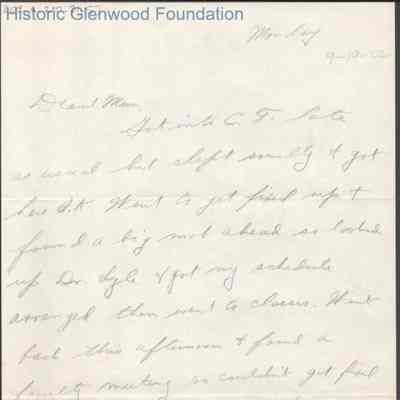 Historic Glenwood Foundation
Monday
Dearest Mom,
Got into C. F. late
as usual but slept soundly & got
here O.K. Went to get fixed up &
found a big mob ahead so looked
up Dr. Lyle & got my schedule
arranged then went to classes. Went
back this afternoon & found a
faculty meeting so couldn't get fixed